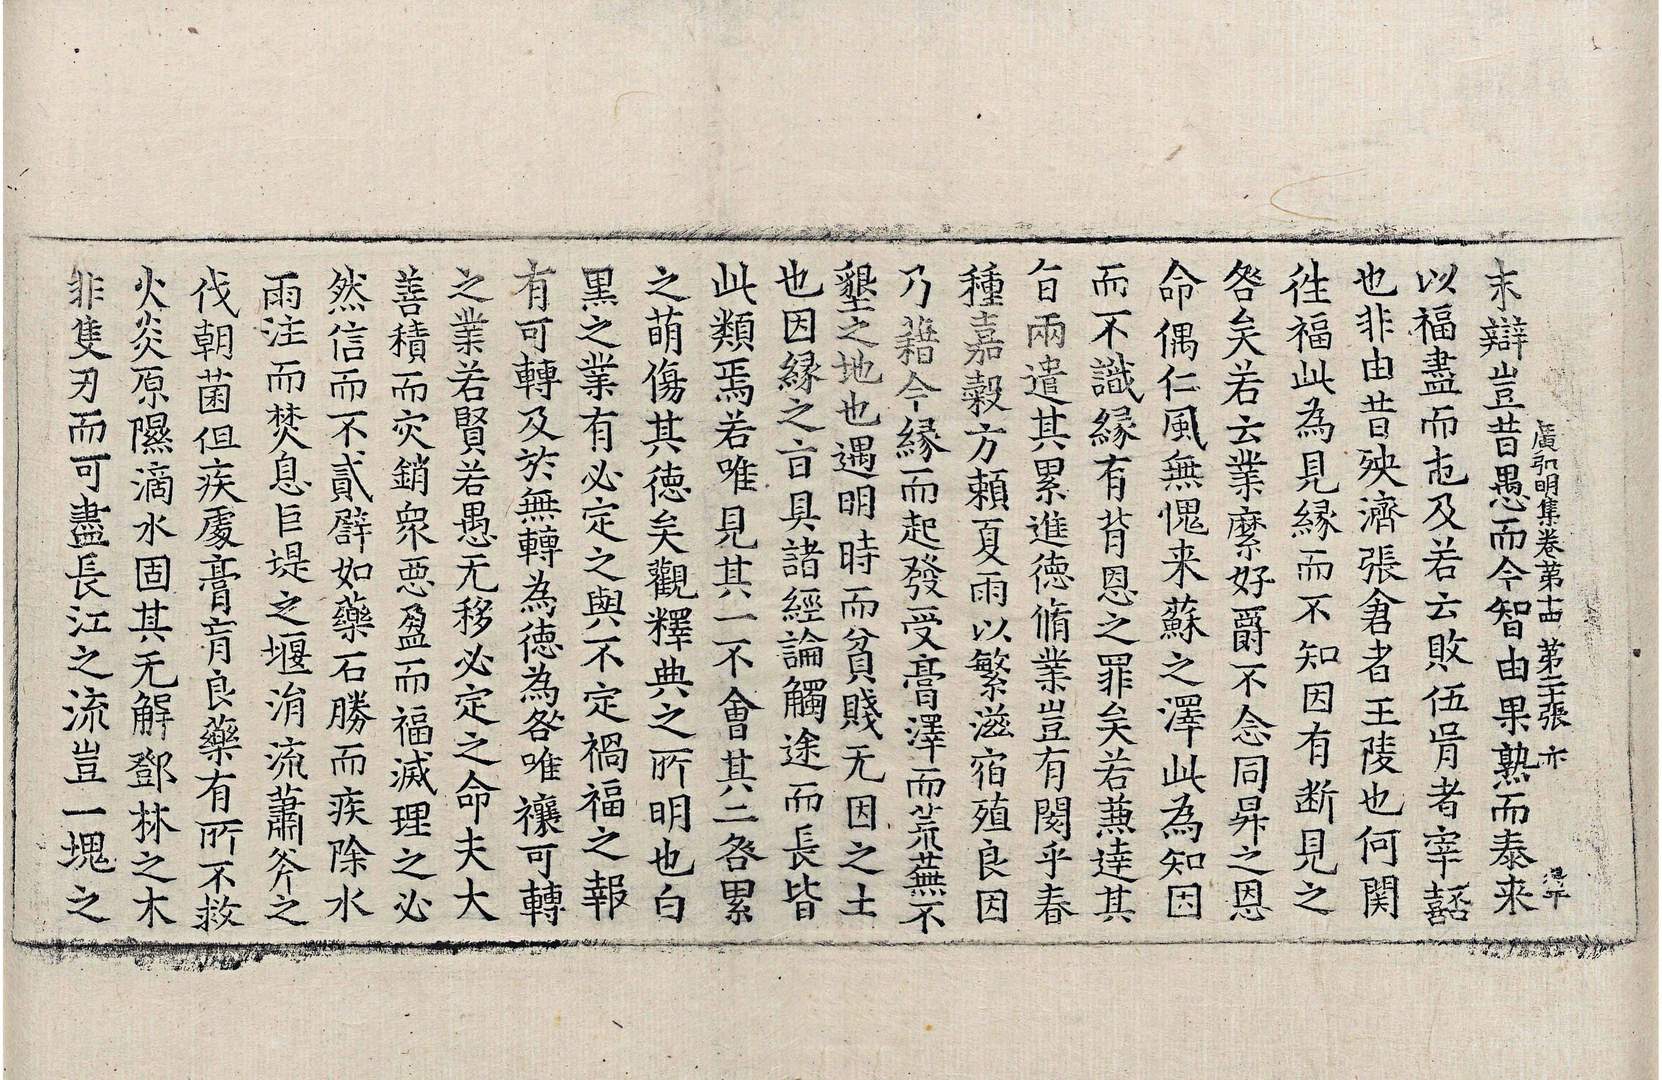 廣弘明集卷第十四 第二十張 亦
末辯豈昔愚而今智由果熟而泰来
以福盡而否及若云敗伍胥者宰嚭
也非由昔殃濟張倉者王陵也何関
徃福此為見縁而不知因有断見之
咎矣若云業縻好爵不念同昇之恩
命偶仁風無愧来蘇之澤此為知因
而不識縁有背恩之罪矣若兼逹其
旨兩遣其累進德脩業豈有閡乎春
種嘉穀方頼夏雨以繁滋宿殖良因
乃藉今縁而起發受膏澤而荒蕪不
墾之地也遇明時而貧賤无因之士
也因縁之旨具諸經論觸途而長皆
此類焉若唯見其一不會其二咎累
之萌傷其德矣觀釋典之所明也白
黒之業有必定之與不定禍福之報
有可轉及於無轉為德為咎唯禳可轉
之業若賢若愚无移必定之命夫大
善積而灾銷衆惡盈而福滅理之必
然信而不貳譬如藥石勝而疾除水
雨注而焚息巨堤之堰涓流蕭斧之
伐朝菌但疾處膏肓良藥有所不救
火炎原隰滴水固其无解鄧林之木
非隻刃而可盡長江之流豈一塊之